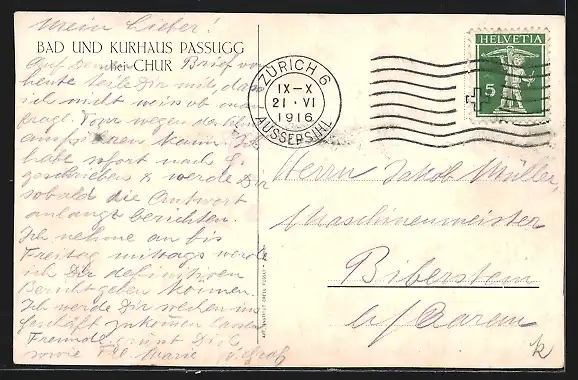 Mein Lieber!
BAD UND KURHAUS PASSUGG
bei CHUR
Auf Deinen Brief von
heute teile Dir mit, dass
ich nicht weiss ob
wegen
Mann. Ich
habe sofort nach
geschrieben & werde Dir
sobald die Antwort
anlangt berichten.
Ich nehme an bis
Freitag mittags werde
ich Dir definitiven
Bericht geben können.
Ich werde Dir
Geschäft zukommen lassen
Freundl. grüsst Dich
sowie Frl. Marie
ZÜRICH 6
IX-X
21 · VI
1916
AUSSERSIHL
HELVETIA
5
Herrn Jakob Müller,
Maschinenmeister
Biberstein
b/Aarau